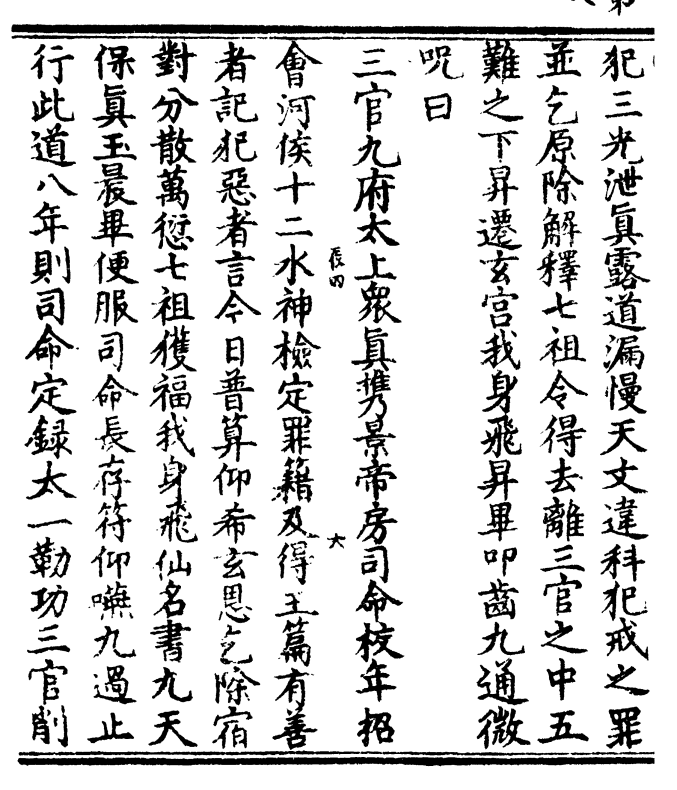 犯三光泄眞露道漏慢天文違科犯戒之罪
並乞原除解釋七祖令得去離三官之中五
難之下昇遷玄宫我身飛昇畢叩齒九通微
呪曰
三官九府太上衆眞携景帝房司命校年招
會河侯十二水神檢定罪籍及得玉篇有善
者記犯惡者言今日普算仰希玄恩乞除宿
對分散萬愆七祖獲福我身飛仙名書九天
保眞玉晨畢便服司命長存符仰嚥九過止
行此道八年則司命定録太一勒功三官削